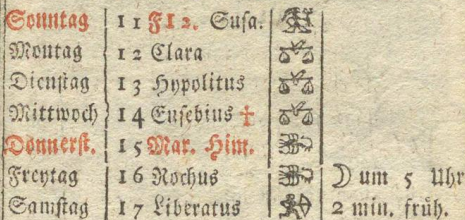 Sonntag 11 F12. Susa.
Montag 12 Clara
Dienstag 13 Hypolitus
Mittwoch 14 Eusebius †
Donnerst. 15 Mar. Him.
Freytag 16 Rochus ☽ um 5 Uhr
Samstag 17 Liberatus 2 min. früh.